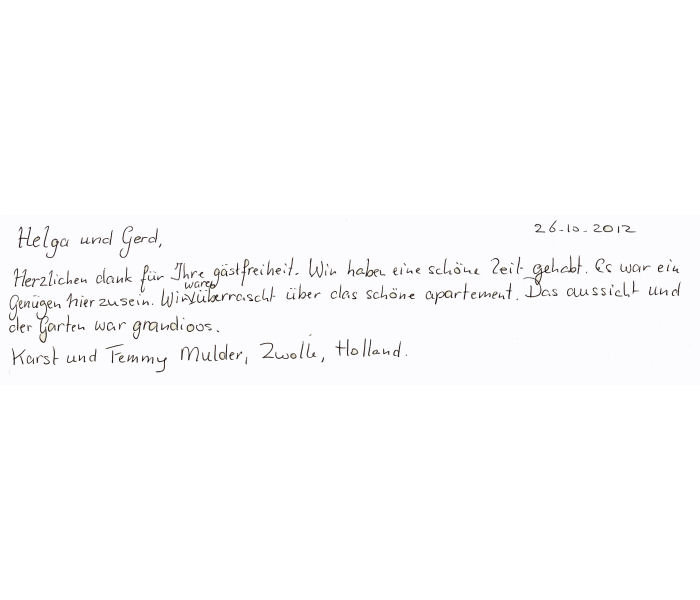 26-10-2012
Helga und Gerd,
Herzlichen dank für Ihre gästfreiheit. Wir haben eine schöne Zeit gehabt. Es war ein
Genügen hier zu sein. Wir waren überrascht über das schöne apartement. Das aussicht und
der Garten war grandioos.
Karst und Temmy Mulder, Zwolle, Holland.